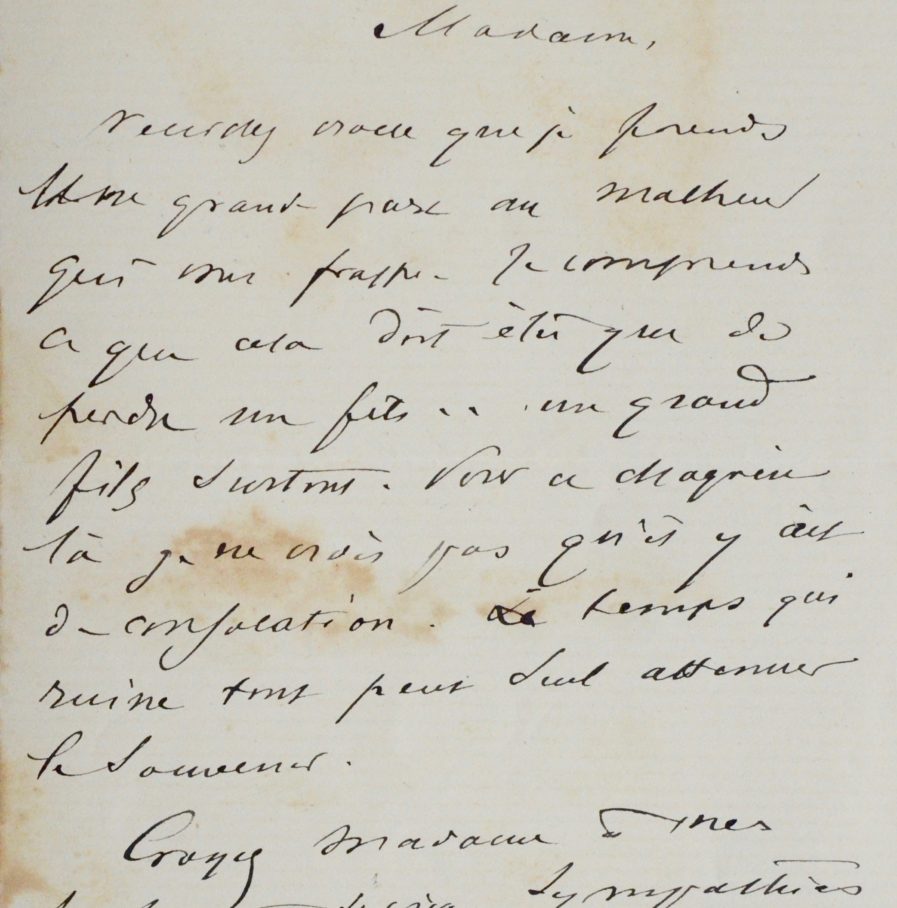 Madame,
veuillez croire que je prends
une grande part au malheur
qui vous frappe. Je comprends
ce que cela doit être que de
perdre un fils .. un grand
fils surtout. Pour ce chagrin
là je ne crois pas qu'il y ait
de consolation. Le temps qui
ruine tout peut seul attenuer
le souvenir.
Croyez madame à mes
sympathies